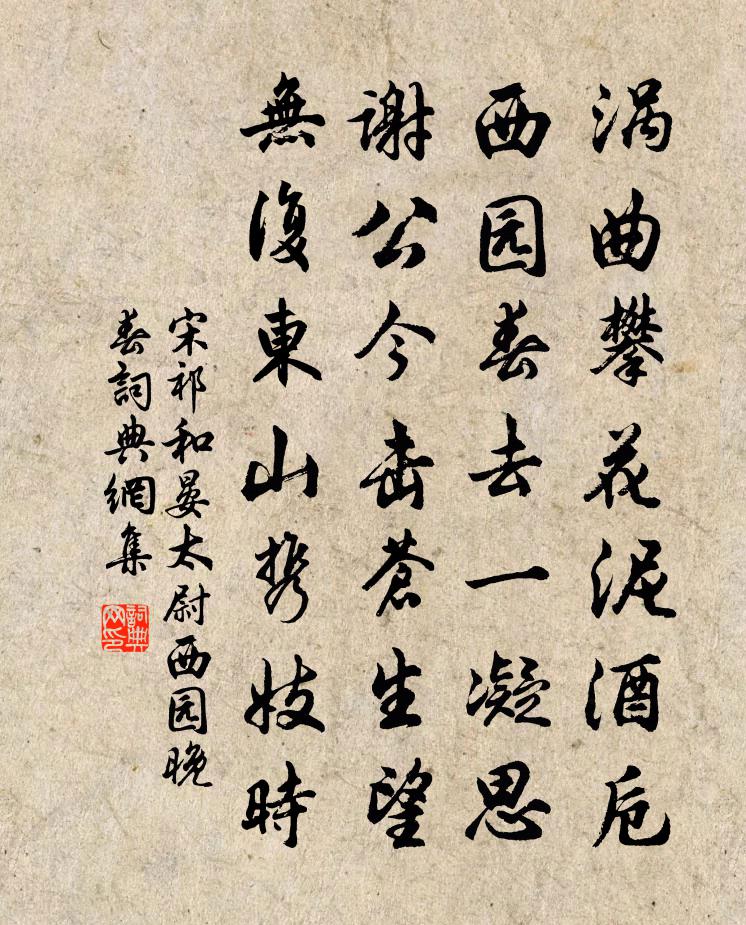 涡曲攀花泥酒卮
西园春去一凝思
謝公今击蒼生望
無復東山携妓時
宋祁和晏太尉西园晚
春詞典網集
詞典網印